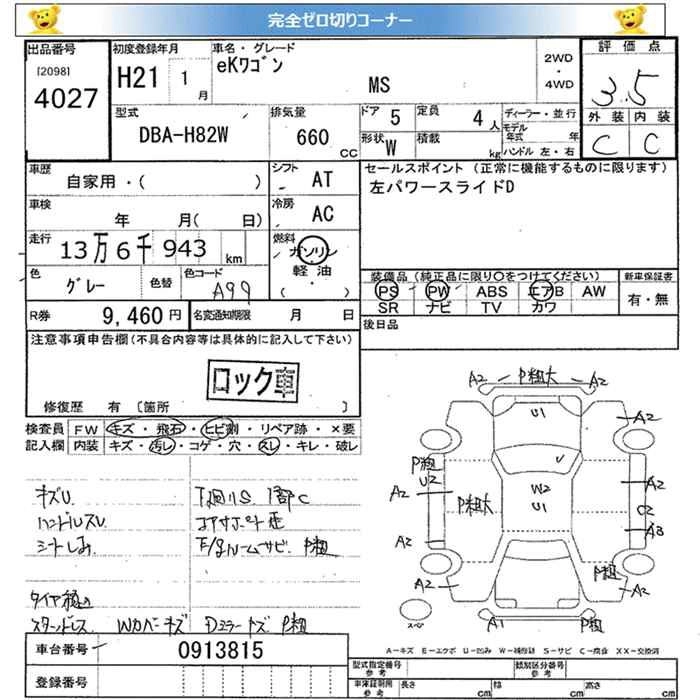 完全ゼロ切りコーナー
出品番号
[2098]
4027
初度登録年月
H21 1
月
車名・グレード
eKワゴン
MS
2WD
・
4WD
評価点
3.5
外装 内装
C C
型式
DBA-H82W
排気量
660
CC
ドア 5
定員 4
人
形状 W
積載
kg
ディーラー・並行
モデル
年式 年
ハンドル 左・右
車歴
自家用・( )
シフト
AT
車検
年 月( 日)
冷房
AC
走行
13万6千943 km
燃料
ガソリン
軽油
( )
色
グレー
色替
色コード
A99
セールスポイント(正常に機能するものに限ります)
左パワースライドD
装備品(純正品に限り〇をつけてください)
PS PW ABS エアB AW
SR ナビ TV カワ
新車保証書
有・無
R券 9,460円
名変通知期限 月 日
後日品
注意事項申告欄(不具合内容等は具体的に記入して下さい)
ロック車
修復歴 有 [箇所 ]
検査員
記入欄
FW キズ・飛石・ヒビ割・リペア跡・×要
内装 キズ・汚レ・コゲ・穴・スレ・キレ・破レ
キズU
ハンドルスレ
シートしみ
下廻りS 1部C
コアサポート歪
F/gルームサビ P粗
スタッドレス Wカバーキズ Dミラーキズ P粗
A2 P粗大 A2
U1
A2
P粗
U2
A2
P粗大
W2
U1
A2
C2
A3
A2
A2
P粗
A2
A1
P粗
スペア
A-キズ E-エクボ U-凹み W-補修跡 S-サビ C-腐食 XX-交換済
車台番号 0913815
登録番号
型式指定番号
参考
類別区分番号
参考
車体証明用
参考
長さ cm
幅 cm
高さ cm